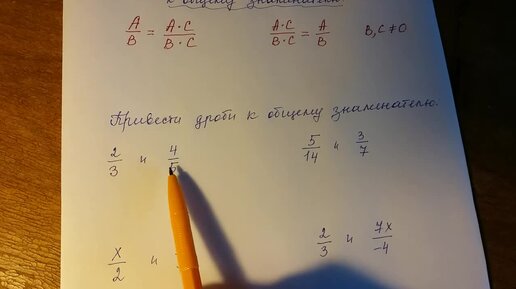 к общему знаменателю.
A/B = A·C/B·C A·C/B·C = A/B B, C ≠ 0
Привести дроби к общему знаменателю.
2/3 и 4/5 5/14 и 3/7
x/2 и 2/3 и 7x/-4